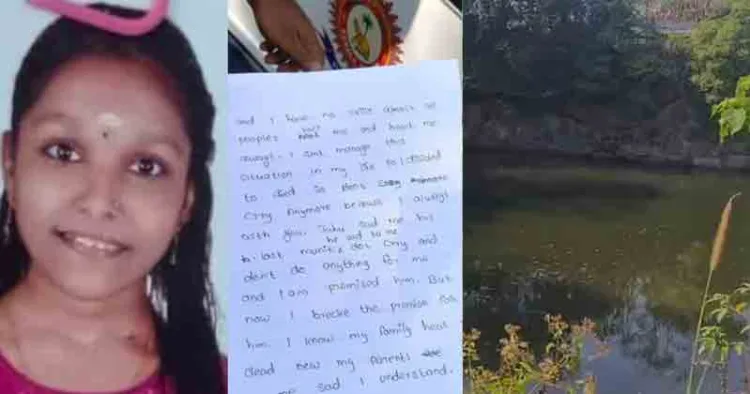 and I have no
peoples hart me and heart me
always. I cant manage this
situation in my life so I decided
to died so dont cry anymore
Cry. Anymore because I always
with you. said me his
last he said to me dont Cry and
dont do anything for me
and I am promised him. But
now I brocke the promise for
him. I know my family heat
dead new my parents
sad I understand.